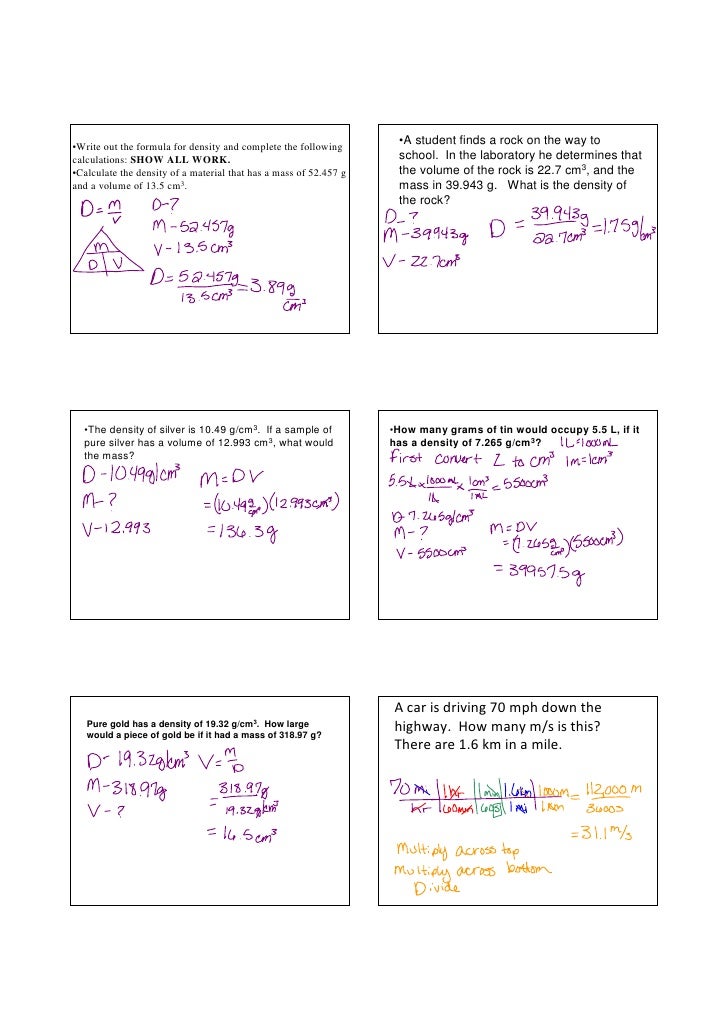 •Write out the formula for density and complete the following
calculations: SHOW ALL WORK.
•Calculate the density of a material that has a mass of 52.457 g
and a volume of 13.5 cm³.
D = m/v
D-?
M-52.457g
V-13.5cm³
m
D V
D = 52.457g / 13.5cm³ = 3.89 g/cm³
•A student finds a rock on the way to
school. In the laboratory he determines that
the volume of the rock is 22.7 cm³, and the
mass in 39.943 g. What is the density of
the rock?
D-?
M-39943g
V-22.7cm³
D = 39.943g / 22.7cm³ = 1.75g/cm³
•The density of silver is 10.49 g/cm³. If a sample of
pure silver has a volume of 12.993 cm³, what would
the mass?
D-10.49g/cm³
M-?
V-12.993
M=DV
=(10.49 g/cm³)(12.993cm³)
=136.3g
•How many grams of tin would occupy 5.5 L, if it
has a density of 7.265 g/cm³?
1L=1000mL
first convert L to cm³ 1m=1cm³
5.5L x 1000mL/1L x 1cm³/1mL = 5500cm³
D-7.265g/cm³
M-?
V-5500cm³
M=DV
=(7.265 g/cm³)(5500cm³)
= 39957.5g
Pure gold has a density of 19.32 g/cm³. How large
would a piece of gold be if it had a mass of 318.97 g?
D-19.32g/cm³
M-318.97g
V-?
V= M/D
= 318.97g / 19.32g/cm³
= 16.5cm³
A car is driving 70 mph down the
highway. How many m/s is this?
There are 1.6 km in a mile.
70 mi | 1hr | 1min | 1.6km | 1000m = 112,000 m
hr | 60min | 60s | 1mi | 1km 3600s
= 31.1 m/s
Multiply across top
Multiply across bottom
Divide